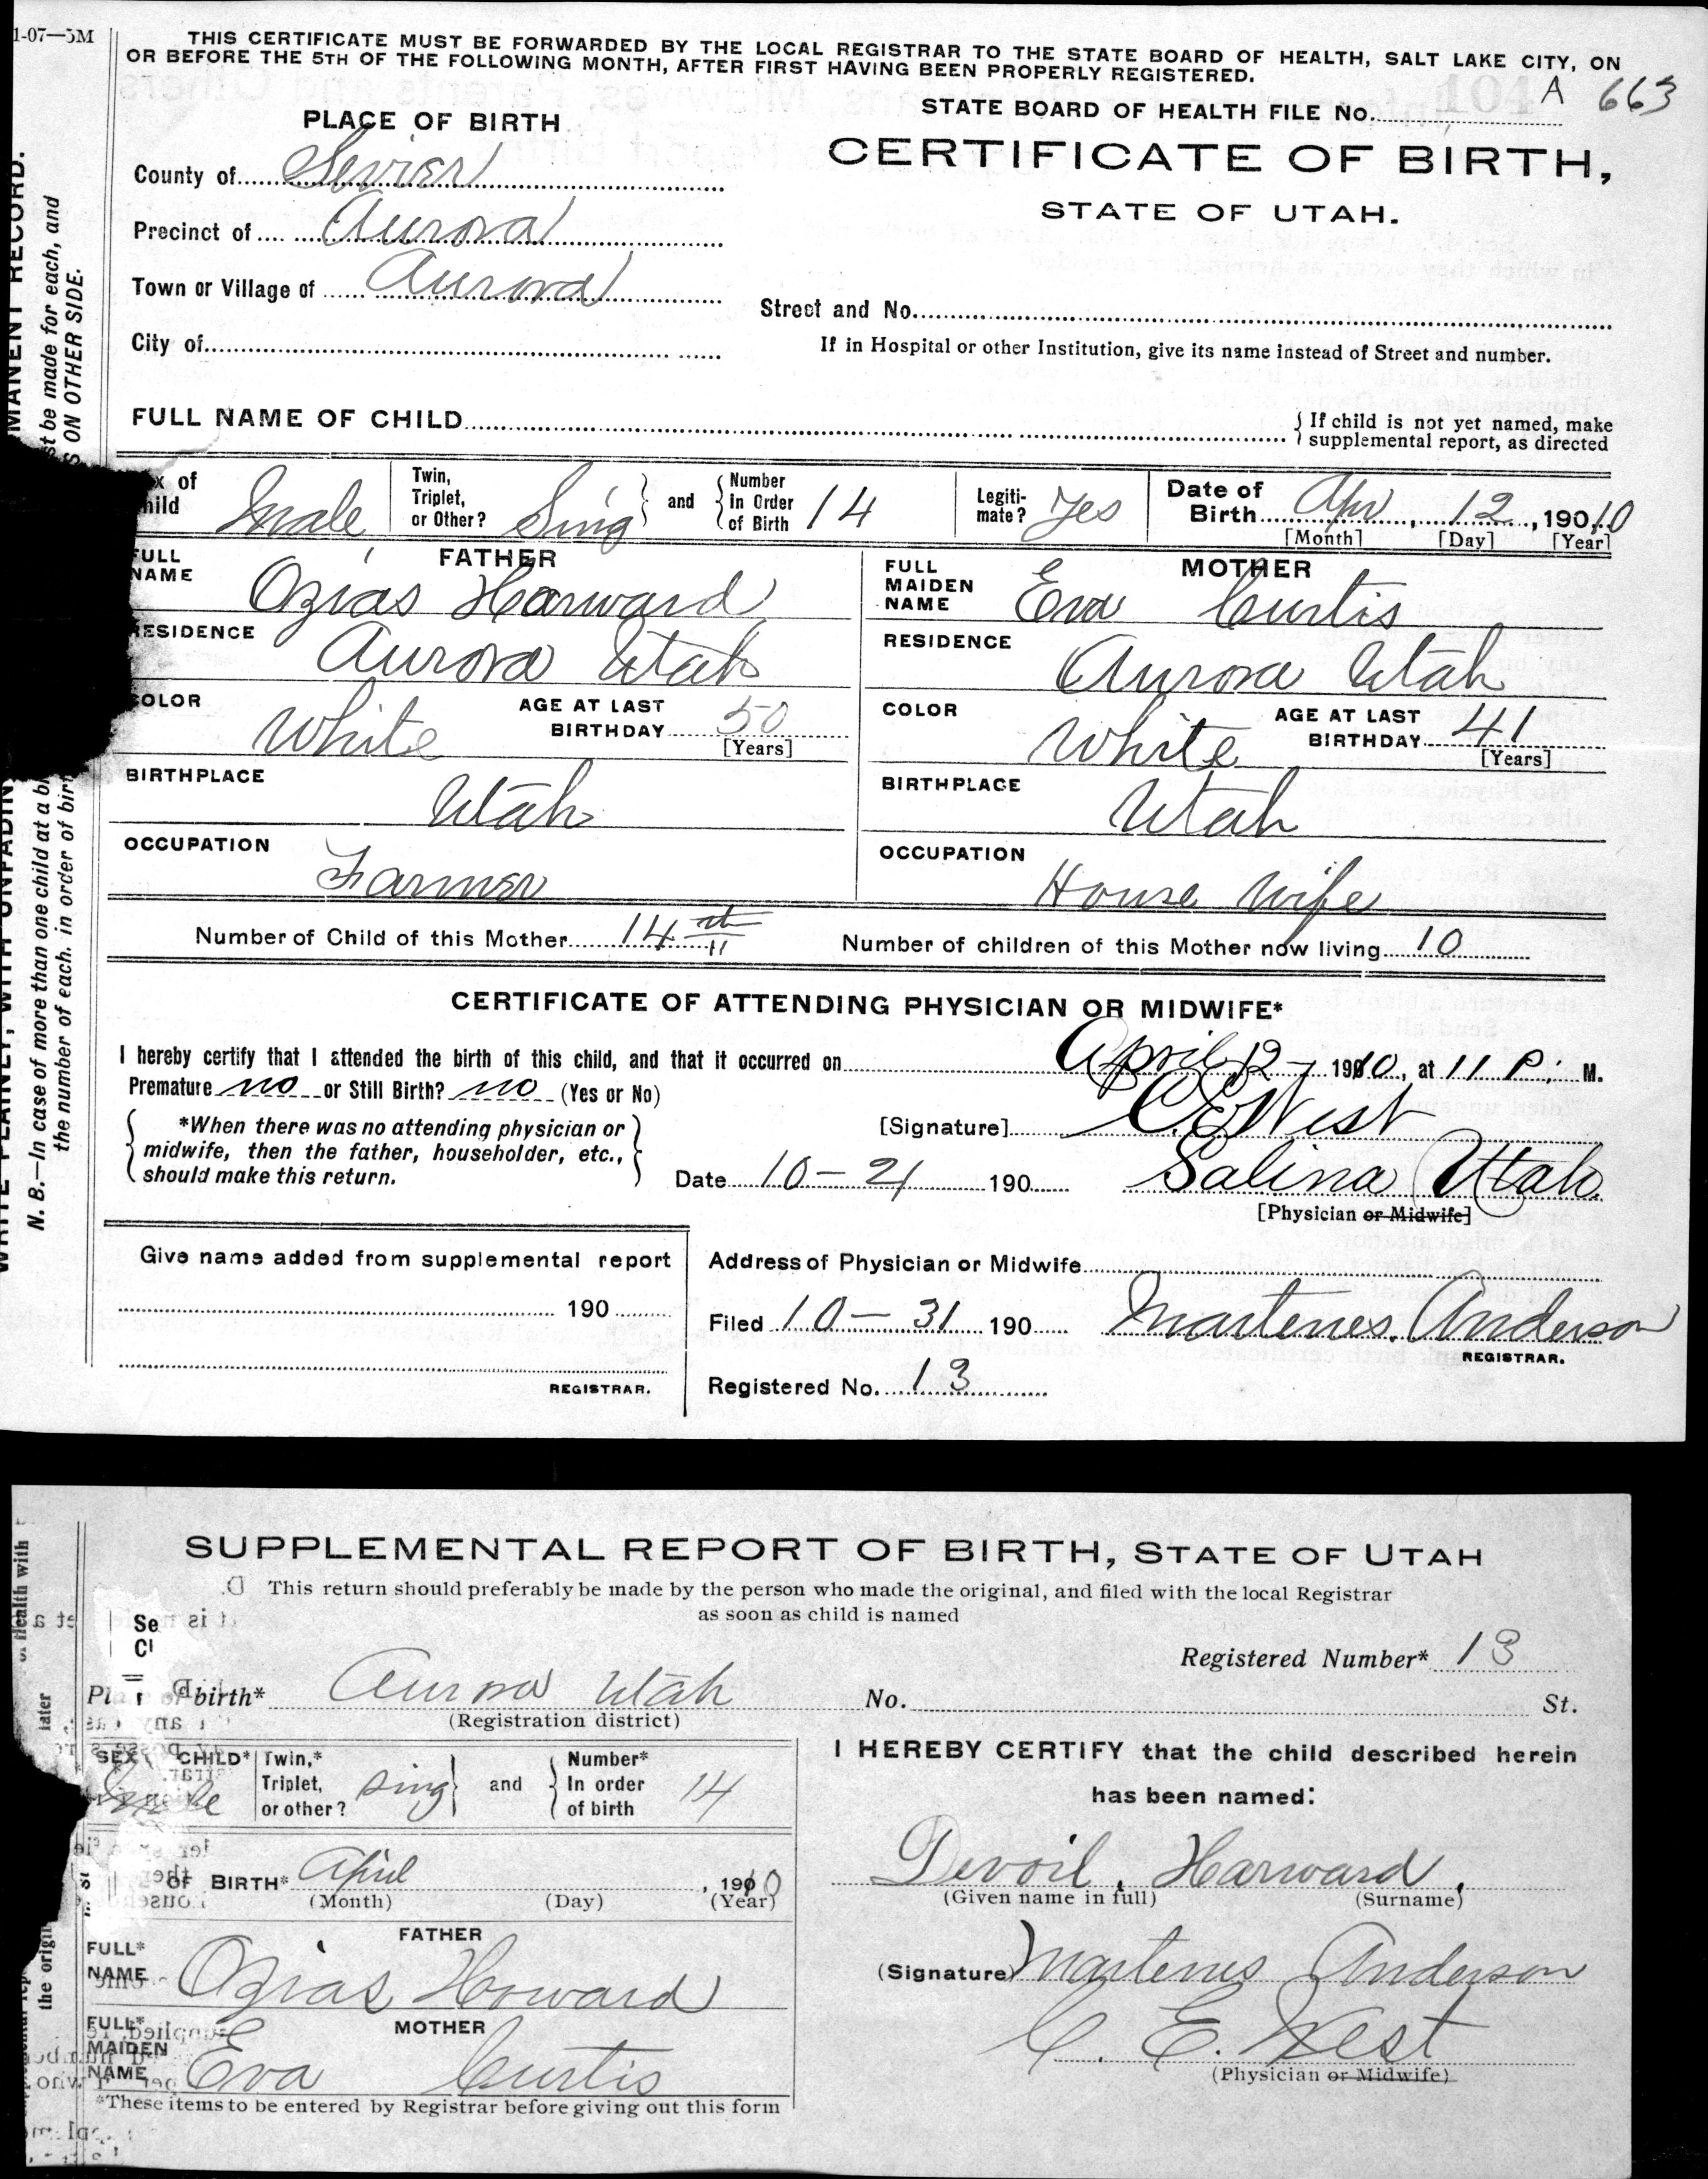 1-07—5M
THIS CERTIFICATE MUST BE FORWARDED BY THE LOCAL REGISTRAR TO THE STATE BOARD OF HEALTH, SALT LAKE CITY, ON
OR BEFORE THE 5TH OF THE FOLLOWING MONTH, AFTER FIRST HAVING BEEN PROPERLY REGISTERED.
STATE BOARD OF HEALTH FILE No. 104 A 663
PLACE OF BIRTH
CERTIFICATE OF BIRTH,
STATE OF UTAH.
County of Sevier
Precinct of Aurora
Town or Village of Aurora
Street and No.
City of
If in Hospital or other Institution, give its name instead of Street and number.
FULL NAME OF CHILD
{ If child is not yet named, make
supplemental report, as directed
x of
hild Male
Twin,
Triplet,
or Other? Sing } and { Number
in Order
of Birth 14
Legiti-
mate? Yes
Date of
Birth Apr, 12, 19010
[Month] [Day] [Year]
FATHER
FULL
NAME Ozias Harward
RESIDENCE Aurora Utah
COLOR White
AGE AT LAST
BIRTHDAY 50
[Years]
BIRTHPLACE Utah
OCCUPATION Farmer
MOTHER
FULL
MAIDEN
NAME Eva Curtis
RESIDENCE Aurora Utah
COLOR White
AGE AT LAST
BIRTHDAY 41
[Years]
BIRTHPLACE Utah
OCCUPATION House Wife
Number of Child of this Mother 14th
Number of children of this Mother now living 10
CERTIFICATE OF ATTENDING PHYSICIAN OR MIDWIFE*
I hereby certify that I attended the birth of this child, and that it occurred on April 12 - 1910, at 11 P. M.
Premature no or Still Birth? no (Yes or No)
{ *When there was no attending physician or
midwife, then the father, householder, etc.,
should make this return. }
[Signature] C E West
Date 10 - 21 190
Salina Utah
[Physician or Midwife]
Give name added from supplemental report
190
REGISTRAR.
Address of Physician or Midwife
Filed 10 - 31 190 Martenes Anderson
REGISTRAR.
Registered No. 13
MANENT RECORD.
st be made for each, and
S ON OTHER SIDE.
N. B.—In case of more than one child at a bi
the number of each. in order of birt
SUPPLEMENTAL REPORT OF BIRTH, STATE OF UTAH
This return should preferably be made by the person who made the original, and filed with the local Registrar
as soon as child is named
Registered Number* 13
of birth* Aurora Utah No. St.
(Registration district)
SEX CHILD* Male
Twin,*
Triplet,
or other? sing } and { Number*
In order
of birth 14
OF BIRTH* April, 1910
(Month) (Day) (Year)
FATHER
FULL*
NAME Ozias Howard
MOTHER
FULL*
MAIDEN
NAME Eva Curtis
*These items to be entered by Registrar before giving out this form
I HEREBY CERTIFY that the child described herein
has been named:
Devoil, Harward,
(Given name in full) (Surname)
(Signature) Martenes Anderson
C. E. West
(Physician or Midwife)
of Health with
later
the origin